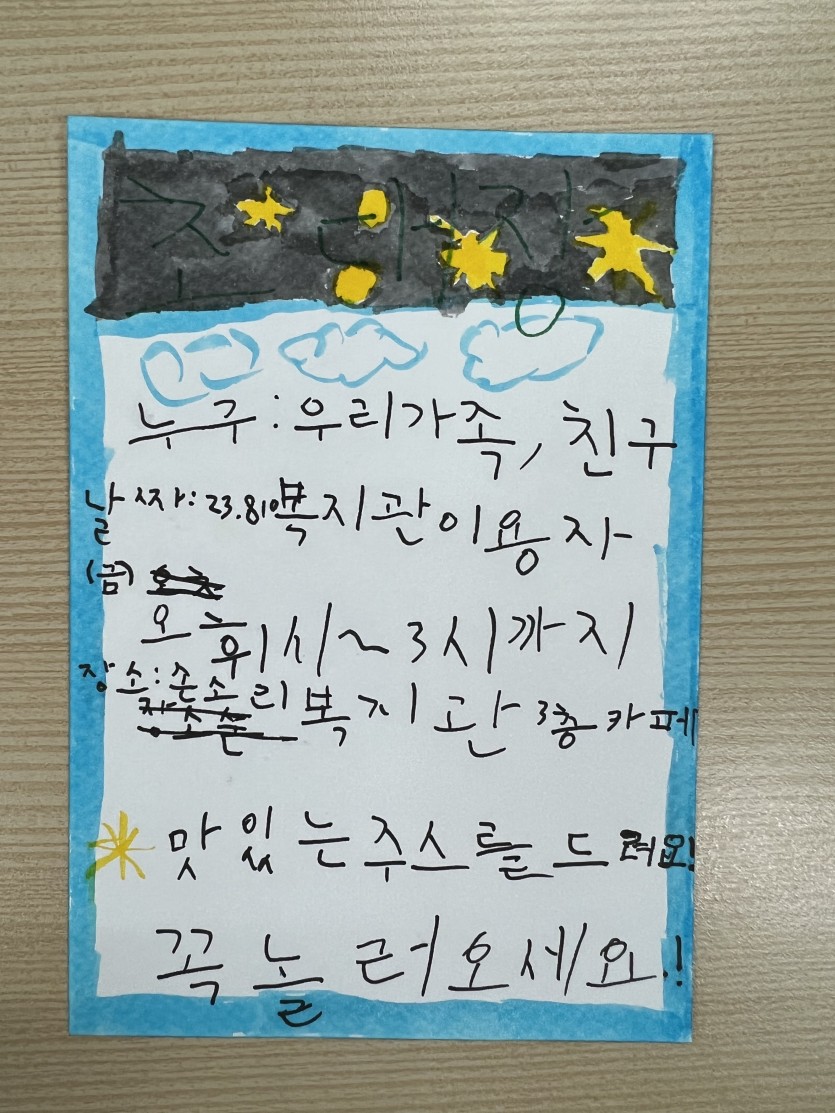 초대장
누구:우리가족,친구
날짜:23.8.10 복지관이용자
(금)
오후1시~3시까지
장소: 소리복지관 3층카페
맛있는주스를드려요!
꼭 놀러오세요.!